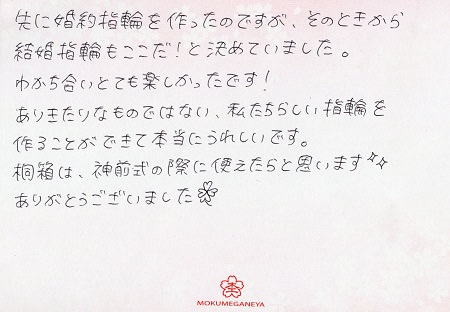 先に婚約指輪を作ったのですが、そのときから
結婚指輪もここだ！と決めていました。
わかち合いとても楽しかったです！
ありきたりなものではない、私たちらしい指輪を
作ることができて本当にうれしいです。
桐箱は、神前式の際に使えたらと思います
ありがとうございました
MOKUMEGANEYA